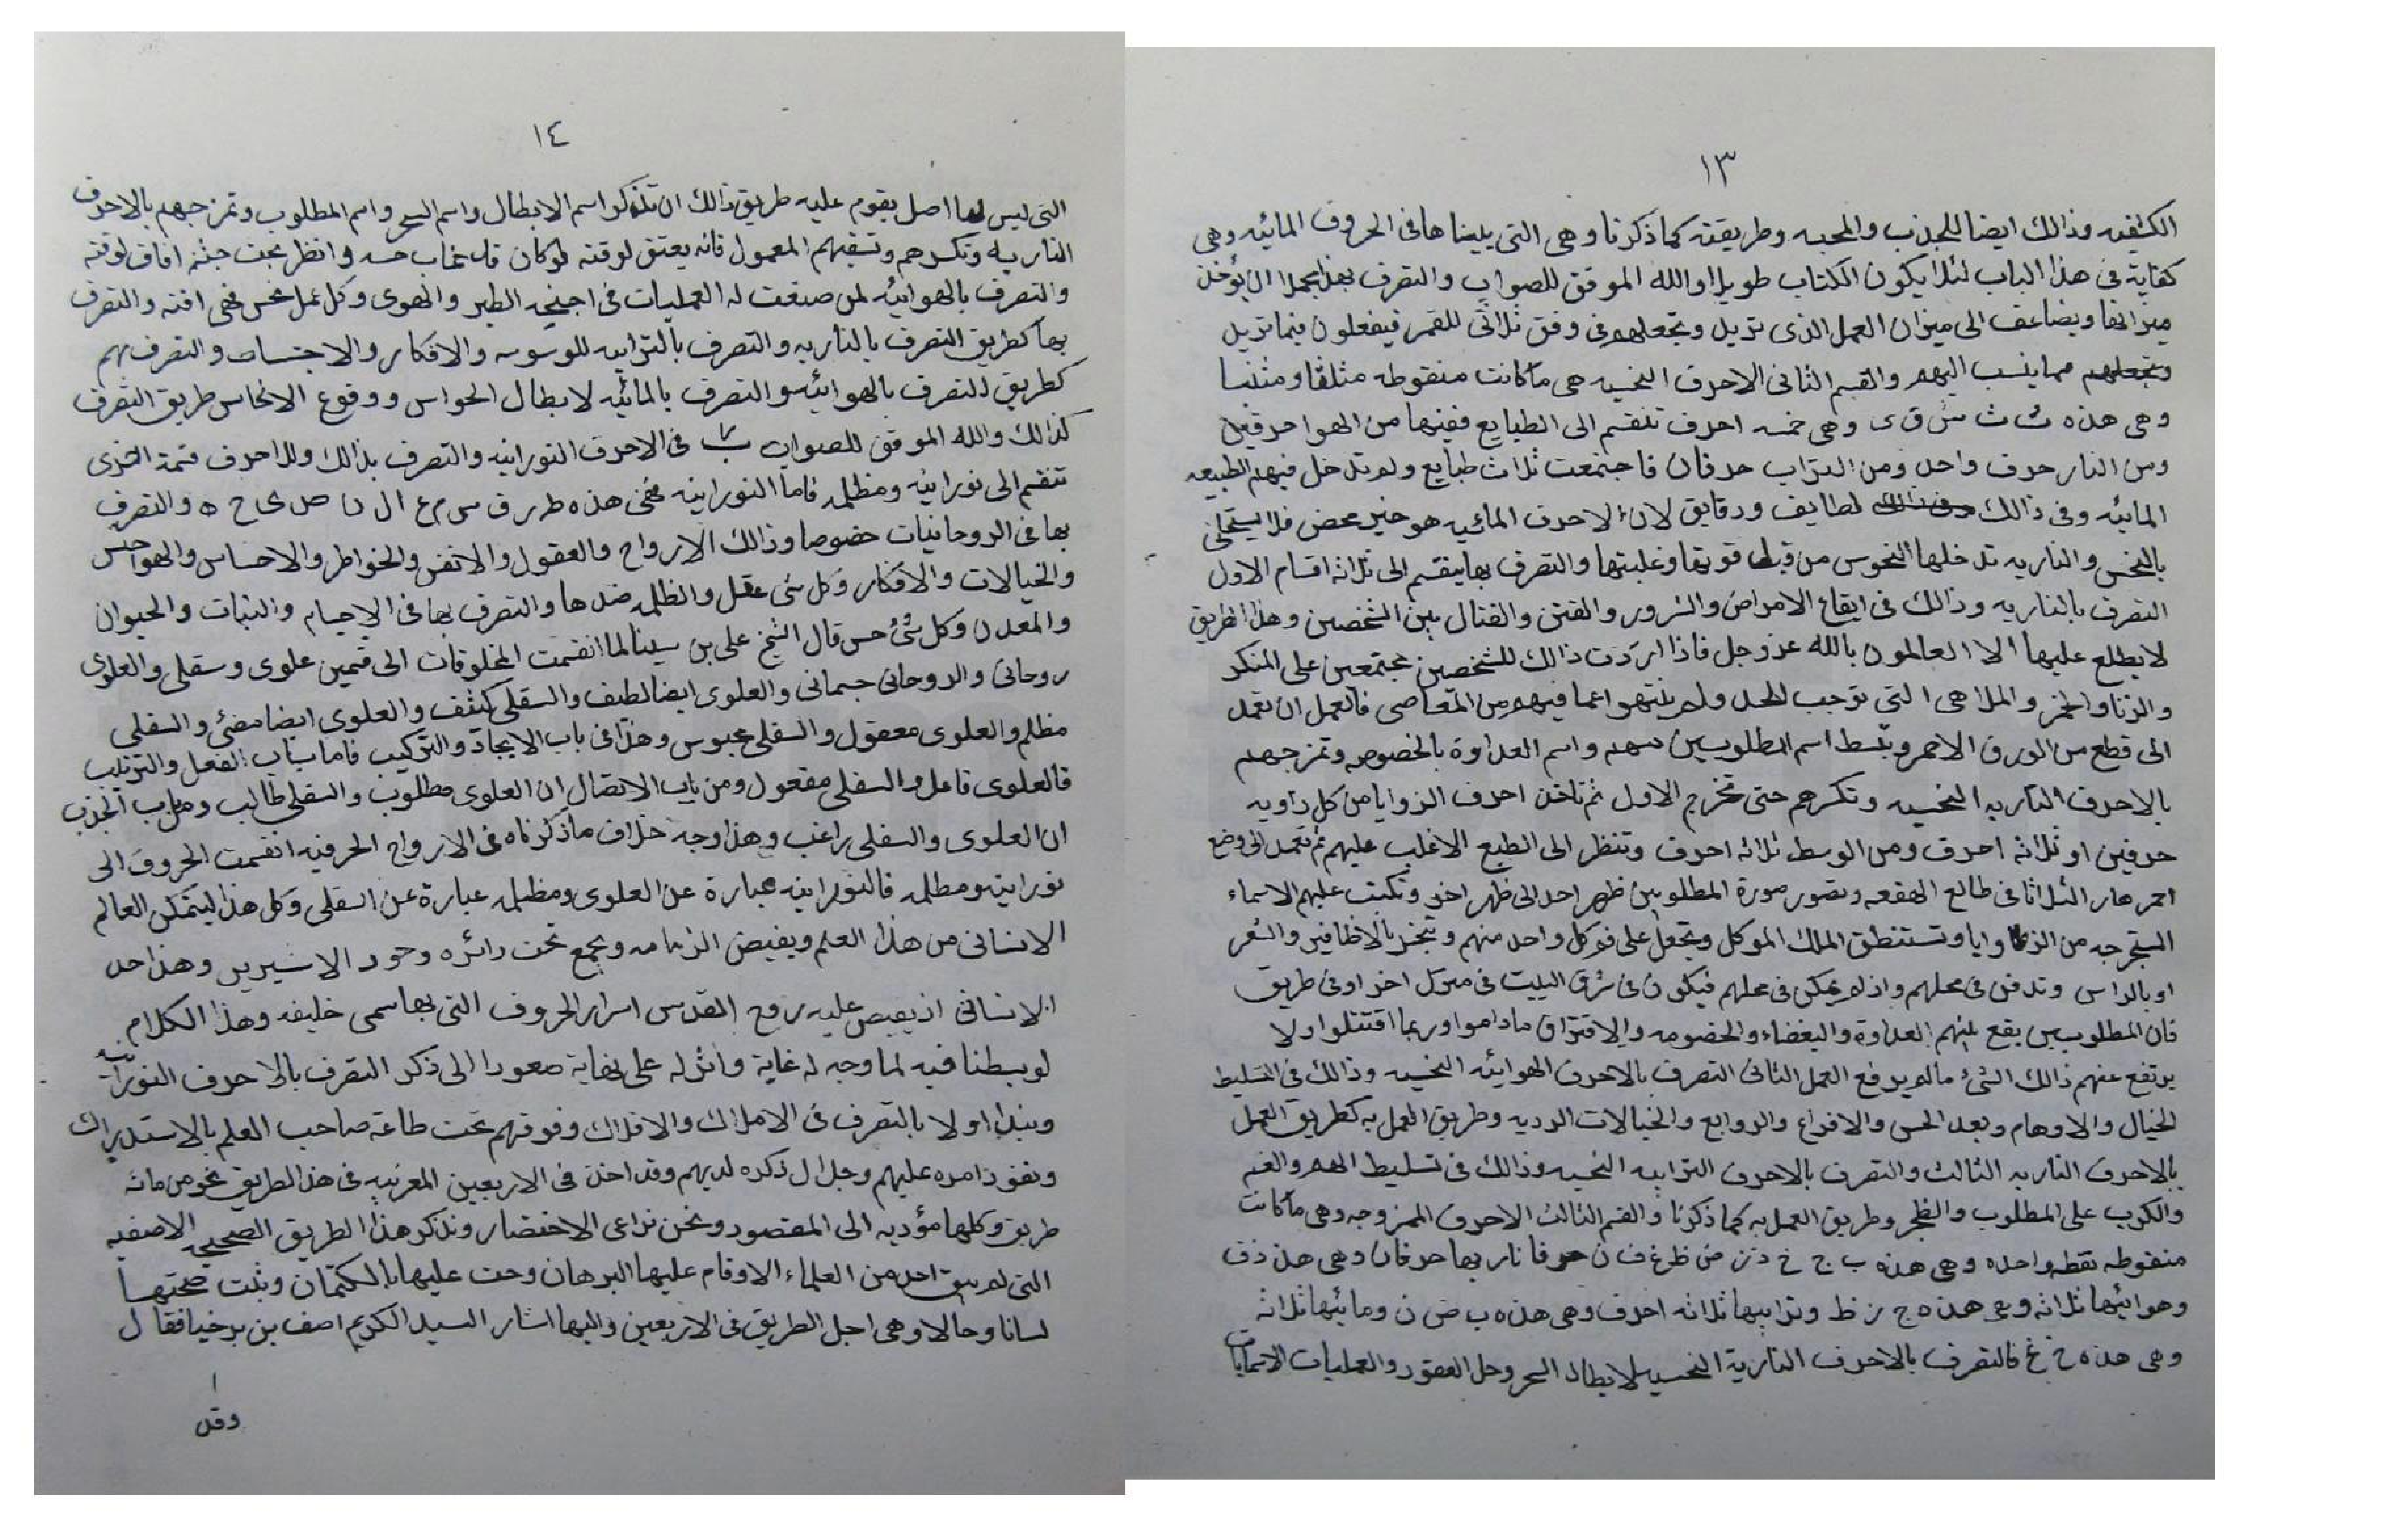 ١٣
الكثفيه وذالك ايضا للجذب والمحبه وطريقته كما ذكرنا وهى التى يليناها فى الحروف المائيه وهى
كفاية فى هذا الباب لئلا يكون الكتاب طويلا والله الموفق للصواب والتصرف بهذا ان يؤخذ
ميزانها ويضاعف الى ميزان العمل الذى تريد وتجعلهم فى وفق ثلاثى للقمر فيفعلون فيما تريد
وتجعلهم مما ينسب اليهم والقسم الثانى الاحرف النحسيه هى ما كانت منقوطه مثلثا ومثنيا
وهى هذه ت ث ش ق ى وهى خمسه احرف تنقسم الى الطبايع ففيها من الهوا حرفين
ومن النار حرف واحد ومن التراب حرفان فاجتمعت ثلاث طبايع ولم تدخل فيهم الطبيعه
المائيه وفى ذالك لطايف ودقايق لان الاحرف المائيه هو خير محض فلا يستحلى
بالنحس والناريه تدخلها النحوس من قبل قوتها وغلبتها والتصرف بها ينقسم الى ثلاثه اقسام الاول
التصرف بالناريه وذالك فى ايقاع الامراض والشرور والفتن والقتال بين الشخصين وهذا الطريق
لا يطلع عليها الا العالمون بالله عز وجل فاذا اردت ذالك للشخصين مجتمعين على المنكر
والزنا والخمر والملاهى التى توجب الحد ولم ينتهوا عما فيهم من المعاصى فالعمل ان تعمد
الى قطع من الورق الاحمر وتبسط اسم المطلوبين واسم العداوة بالخصوص وتمزجهم
بالاحرف الناريه النحسيه وتكسرهم حتى تخرج الاول ثم تاخذ احرف الزوايا من كل زاويه
حرفين او ثلاثه احرف ومن الوسط ثلاثه احرف وتنظر الى الطبع الاغلب عليهم ثم تعمد الى وضع
احمر هار الثلاثا فى طالع الهقعه وتصور صورة المطلوبين ظهر احد الى ظهر اخر وتكتب عليهم الاسماء
المستخرجه من الزوايا وتستنطق الملك الموكل وتجعل على فوكل واحد منهم وتبخر بالاظافير والشعر
او بالراس وتدفن فى محلهم واذ لم يمكن فى محلهم فيكون فى شرق البيت فى منزل اخر او فى طريق
فان المطلوبين يقع بينهم العداوة والبغضاء والخصومه والافتراق ماداموا وربما اقتتلوا ولا
يرتفع عنهم ذالك الشئ مالم يرفع العمل الثانى التصرف بالاحرف الهوائيه النحسيه وذالك فى التسليط
الخيال والاوهام وبعد الحس والافزاع والروابع والخيالات الرديه وطريق العمل به كطريق العمل
بالاحرف الناريه الثالث والتصرف بالاحرف الترابيه النحسيه وذالك فى تسليط الهم والغم
والكرب على المطلوب والظجر وطريق العمل به كما ذكرنا والقسم الثالث الاحرف الممزوجه وهى ما كانت
منقوطه نقطه واحده وهى هذه ب ج خ ذ ز ض ظ غ ف ن فا ناريها حرفان وهى هذ ذ ف
وهوائيها ثلاثه وهى هذه ج ز ظ وترابيها ثلاثه احرف وهى هذه ب ض ن ومائيها ثلاثه
وهى هذه خ غ فالتصرف بالاحرف النارية النحسيه لابطال السحر وحل العقود والعمليات
١٤
التى ليس لها اصل يقوم عليه طريق ذالك ان تذكر اسم الابطال واسم السحر واسم المطلوب وتمزجهم بالاحرف
الناريه وتكسرهم وتسقيهم المعمول فانه يعتق لوقته لو كان قد غاب حسه وانظر بحت جثته افاق لوقته
والتصرف بالهوائيه لمن صنعت له العمليات فى اجنحه الطير والهوى وكل عمل نحس والتصرف
بها كطريق التصرف بالناريه والتصرف بالترابيه للوسوسه والافكار والاحتساب والتصرف بهم
كطريق التصرف بالهوائيه والتصرف بالمائيه لابطال الحواس ووقوع الانحاس طريق التصرف
كذالك والله الموفق للصواب فى الاحرف النورانيه والتصرف بذالك وللاحرف قسمة اخرى
تنقسم الى نورانيه ومظلمه فاما النورانيه فهى هذه ط ر ق س م ع ال ن ص ى ح ه والتصرف
بها فى الروحانيات خصوصا وذالك الارواح والعقول والانفس والخواطر والاحساس والهواجس
والخيالات والافكار وكل شى عقل والظلمه ضدها والتصرف بها فى الاجسام والنبات والحيوان
والمعدن وكل شئ حس قال الشيخ على بن سينا لما انقسمت المخلوقات الى قسمين علوى وسفلى والعلوى
روحانى والروحانى جسمانى والعلوى ايضا لطيف والسفلى كثف والعلوى ايضا مضئ والسفلى
مظلم والعلوى معقول والسفلى محبوس وهذا فى باب الايجاد والتركيب فاما باب الفعل والترتيب
فالعلوى فاعل والسفلى مفعول ومن باب الاتصال ان العلوى مطلوب والسفلى طالب ومن باب الجذب
ان العلوى والسفلى راغب وهذا وجه خلاف ما ذكرناه فى الارواح الحرفيه انقسمت الحروف الى
نورانيه ومظلمه فالنورانيه عبارة عن العلوى ومظلمه عبارة عن السفلى وكل هذا ليتمكن العالم
الانسانى من هذا العلم ويفيض الزمامه ويجمع تحت دائره وهذا حد
الانسانى اذ يفيض عليه روح القدس اسرار الحروف التى بها سمى خليفه وهذا الكلام
لو بسطنا فيه لما وجه له غاية وانزله على نهاية صعودا الى ذكر التصرف بالاحرف النورانيه
ونبدا اولا بالتصرف فى الاملاك والافلاك وفوقهم تحت طاعة صاحب العلم بالاستدراك
ونفوذ امره عليهم وجلال ذكره لديهم وقد اخذ فى الاربعين المغربيه فى هذا الطريق نحو من مائه
طريق وكلها مؤديه الى المقصود ونحن نراعى الاختصار ونذكر هذا الطريق الصحيحه الاصفيه
التى لم يبق احد من العلماء الا وقام عليها البرهان وحت عليها بالكتمان وثبت صحتها
لسانا وحالا وهى اجل الطريق فى الاربعين واليها اشار السيد الكريم اصف بن برخيا فقال
وقد